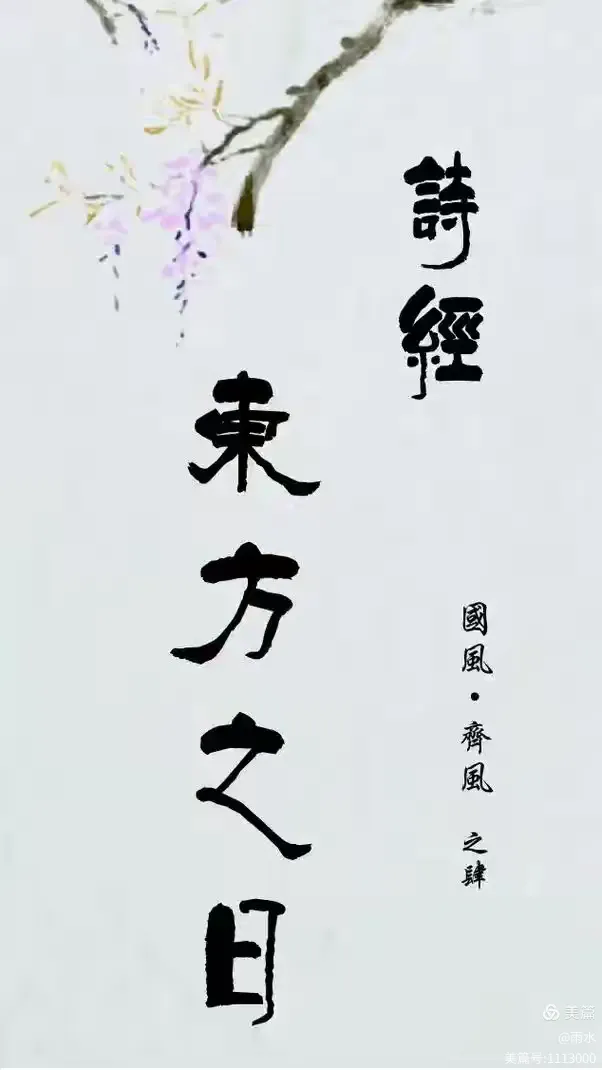 詩經
國風·齊風 之肆
東方之日
美篇
@雨水
美篇号:1113000